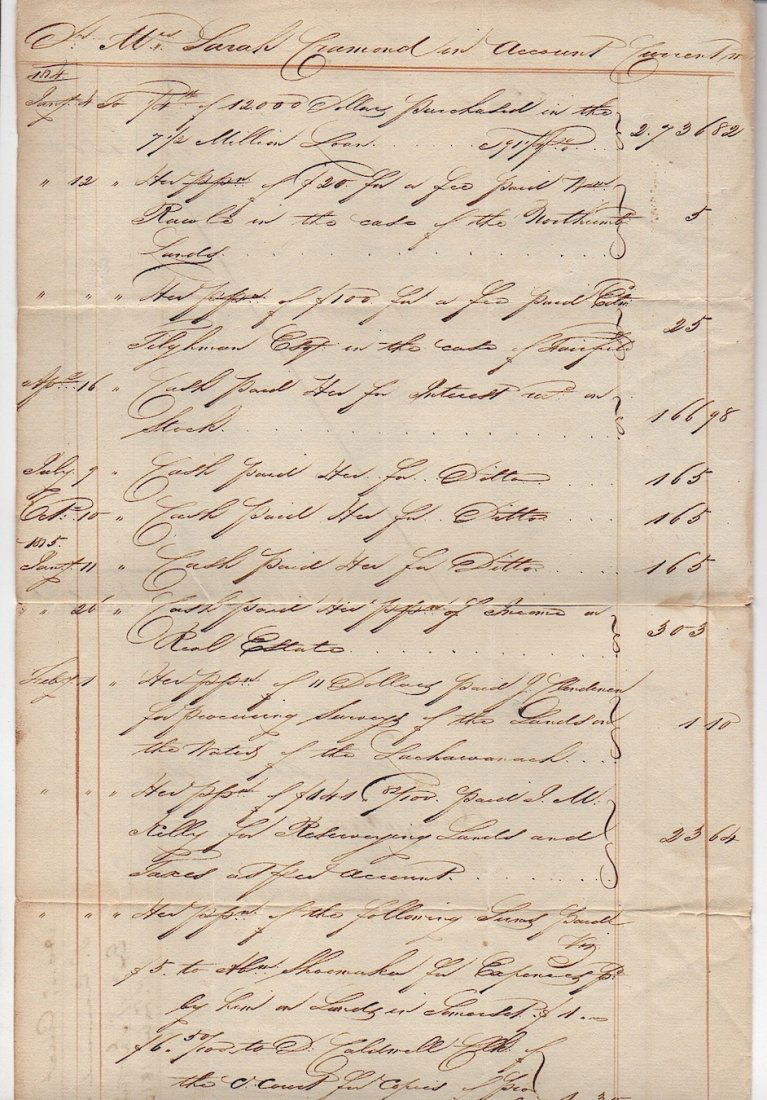 Dr. Mrs. Sarah Cramond in Account Current
1814
Jany. 4 To 1/4th of 12000 Dollars purchased in the
7 1/2 Million Loan 2.736 82
" 12 " Her ppn. of $20. for a fee paid Wm.
Rawle in the case of the Northumb.
Lands 5
" " " Her ppn. of $100. for a fee paid Edw.
Tilghman Esqr. in the case of Fairfield 25
Apl. 16 " Cash paid Her for Interest recd. on
Stock 166 98
July 9 " Cash paid Her for Ditto 165
Oct. 10 " Cash paid Her for Ditto 165
1815.
Jany. 11 " Cash paid Her for Ditto 165
" 26 " Cash paid Her ppn. of Income on
Real Estate 303
Feby. 1 " Her ppn. of 11 Dollars paid J.
for procuring Surveys of the Lands on
the Waters of the Lachawanach 1 10
" " " Her ppn. of $141 82/100 paid J. M.
Killy for Resurveying Lands and
Taxes as per Account 23 64
" " " Her ppn. of the following Sums paid
Viz
$5. to Abm. Shoemaker for Expences pd.
by him on Lands in Somerset $1.
$6. 50/100 to D. Caldwell Clk. of
the C. Court for Copies of